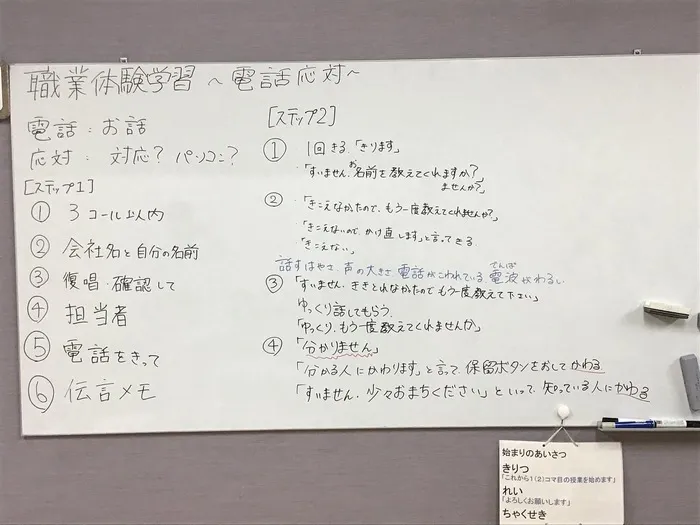 職業体験学習 ~電話応対~
電話：お話
応対： 対応？ パソコン？
[ステップ1]
① 3コール以内
② 会社名と自分の名前
③ 復唱・確認して
④ 担当者
⑤ 電話をきって
⑥ 伝言メモ
[ステップ2]
① 1回きる.「きります」
「すいません.お名前を教えてくれますか？
ませんか？」
② ・「きこえなかたので、もう一度教えてくれませんか？」
「きこえないので、かけ直します」と言ってきる
「きこえない」
話すはやさ、声の大きさ、電話がこわれている、電波がわるい
でんぱ
③ 「すいません、ききとれなかたのでもう一度教えて下さい」
ゆっくり話してもらう.
「ゆっくり、もう一度教えてくれませんか」
④ 「分かりません」
「分かる人にかわります」と言って、保留ボタンをおしてかわる
「すいません、少々おまちください」といって、知っている人にかわる
始まりのあいさつ
きりつ
「これから1(2)コマ目の授業を始めます」
れい
「よろしくお願いします」
ちゃくせき